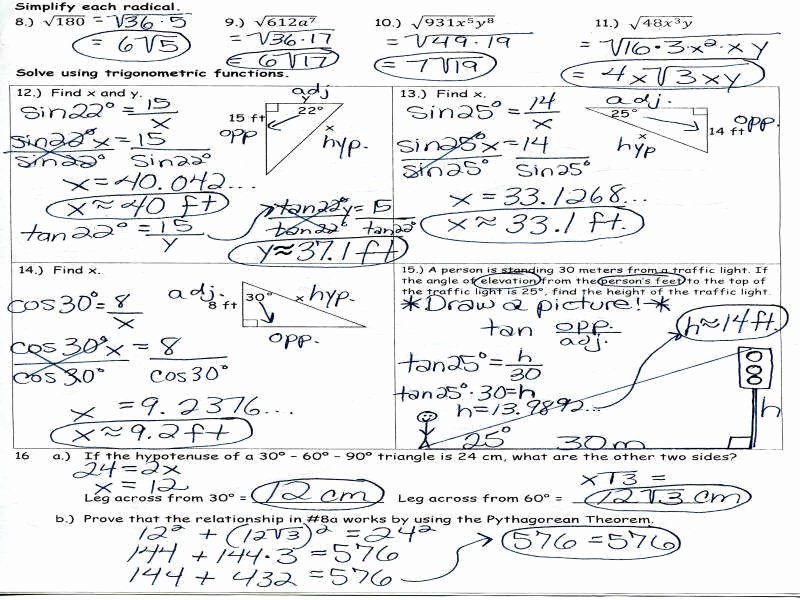 Simplify each radical.
8.) √180 = √36 · 5
= 6√5
9.) √612a⁷
= √36 · 17
= 6√17
10.) √931x⁵y⁸
= √49 · 19
= 7√19
11.) √48x³y
= √16 · 3 · x² · x y
= 4x√3xy
Solve using trigonometric functions.
12.) Find x and y.
sin22° = 15/x
sin22°x = 15
sin22° sin22°
x = 40.042...
x ≈ 40 ft
tan22° = 15/y
adj
y
22°
15 ft
opp
x
hyp.
tan22°y = 15
tan22° tan22°
y ≈ 37.1 ft
13.) Find x.
sin25° = 14/x
sin25°x = 14
sin25° sin25°
x = 33.1268...
x ≈ 33.1 ft.
adj.
25°
14 ft
opp.
x
hyp
14.) Find x.
cos30° = 8/x
cos30°x = 8
cos30° cos30°
x = 9.2376...
x ≈ 9.2 ft
adj.
8 ft
30°
x
hyp.
opp.
15.) A person is standing 30 meters from a traffic light. If
the angle of elevation from the person's feet to the top of
the traffic light is 25°, find the height of the traffic light.
*Draw a picture!*
tan opp./adj.
h ≈ 14 ft.
tan25° = h/30
tan25° · 30 = h
h = 13.9892...
h
25°
30 m
16 a.) If the hypotenuse of a 30° – 60° – 90° triangle is 24 cm, what are the other two sides?
24 = 2x
x = 12
x√3 =
Leg across from 30° = 12 cm Leg across from 60° = 12√3 cm
b.) Prove that the relationship in #8a works by using the Pythagorean Theorem.
12² + (12√3)² = 24²
144 + 144 · 3 = 576
144 + 432 = 576
576 = 576